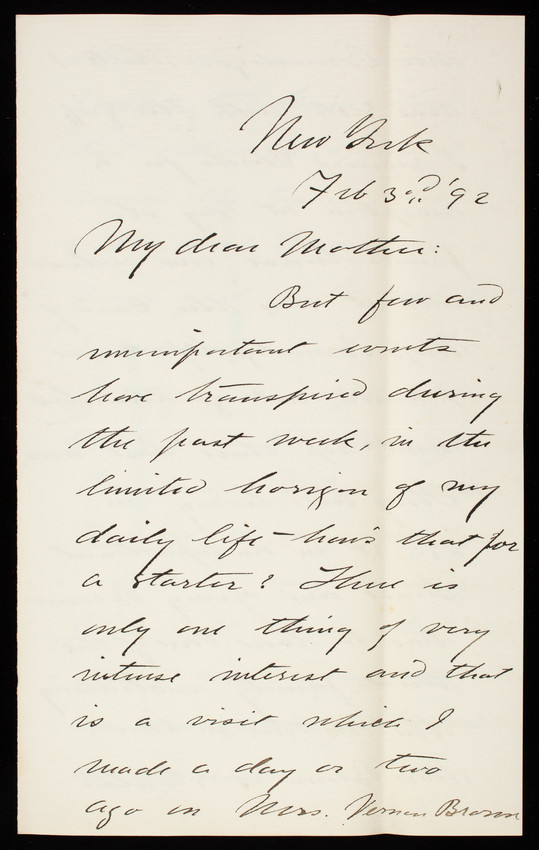 New York
Feb 3rd '92
My dear Mother:
But few and
unimportant events
have transpired during
the past week, in the
limited horizon of my
daily life – how's that for
a starter? There is
only one thing of very
intense interest and that
is a visit which I
made a day or two
ago on Mrs. Vernon Brown